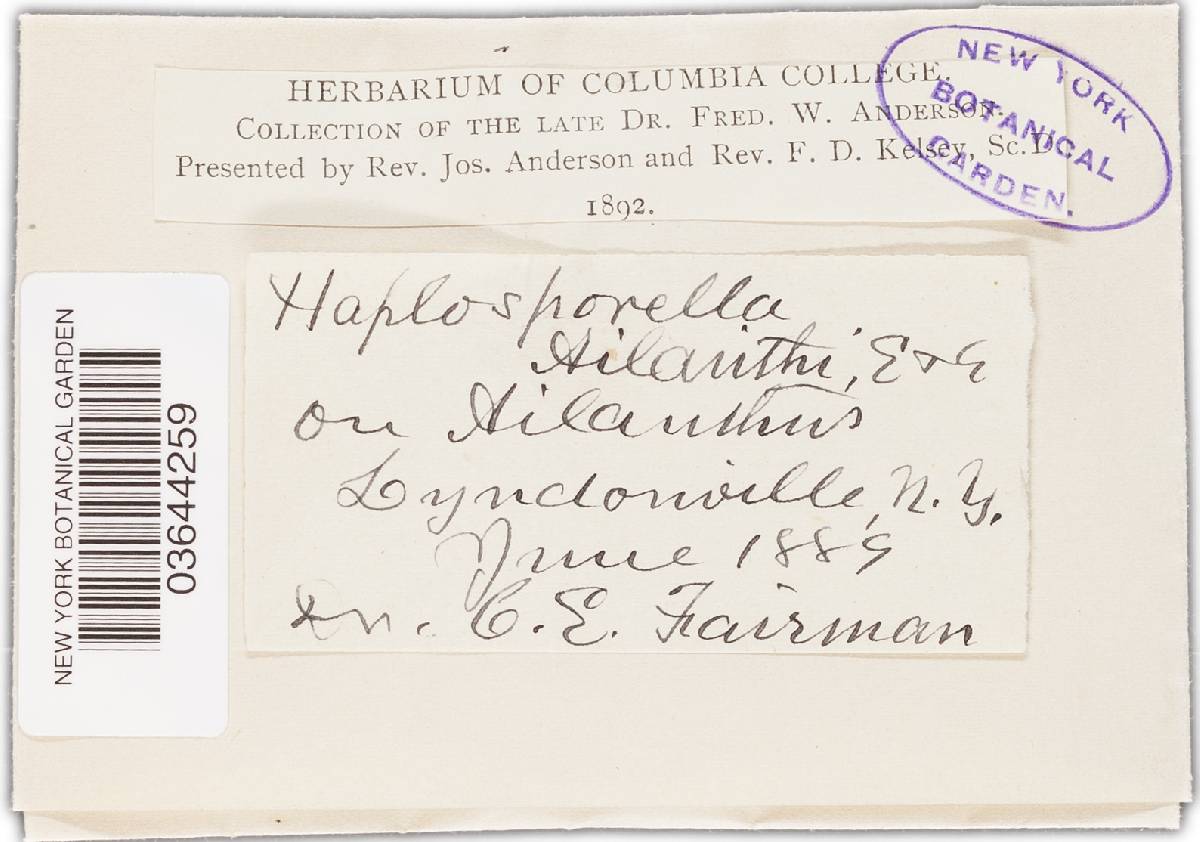 HERBARIUM OF COLUMBIA COLLEGE.
COLLECTION OF THE LATE DR. FRED. W. ANDERSON.
Presented by Rev. Jos. Anderson and Rev. F. D. Kelsey, Sc.D
1892.
NEW YORK
BOTANICAL
GARDEN.
Haplosporella
Ailanthi, E & E
on Ailanthus
Lyndonville, N. Y.
June 1889
Dr. C. E. Fairman
NEW YORK BOTANICAL GARDEN
03644259